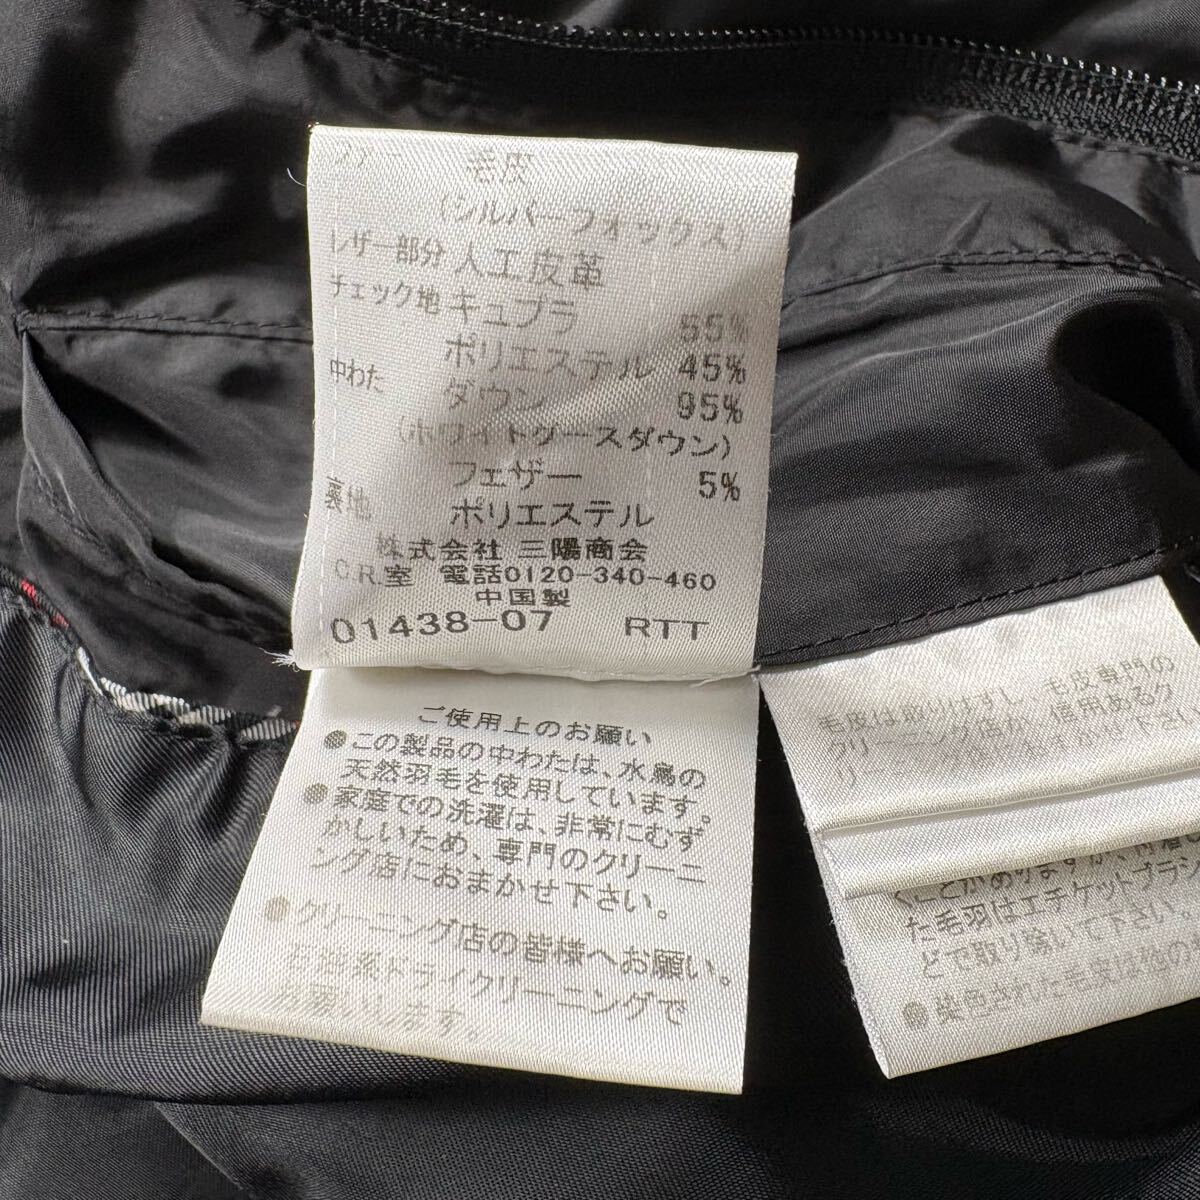 ファー 毛皮
(シルバーフォックス)
レザー部分 人工皮革
チェック地 キュプラ 55%
ポリエステル 45%
中わた ダウン 95%
(ホワイトグースダウン)
フェザー 5%
裏地 ポリエステル
株式会社 三陽商会
C.R.室 電話0120-340-460
中国製
01438-07 RTT
ご使用上のお願い
●この製品の中わたは、水鳥の
天然羽毛を使用しています。
●家庭での洗濯は、非常にむず
かしいため、専門のクリーニ
ング店におまかせ下さい。
●クリーニング店の皆様へお願い。
石油系ドライクリーニングで
お願いします。
毛皮は取りはずし、毛皮専門の
クリーニング店か、信用あるク
リーニング店に
くことがありますが、
た毛羽はエチケットブラシ
どで取り除いて下さい。
●染色された毛皮は他の